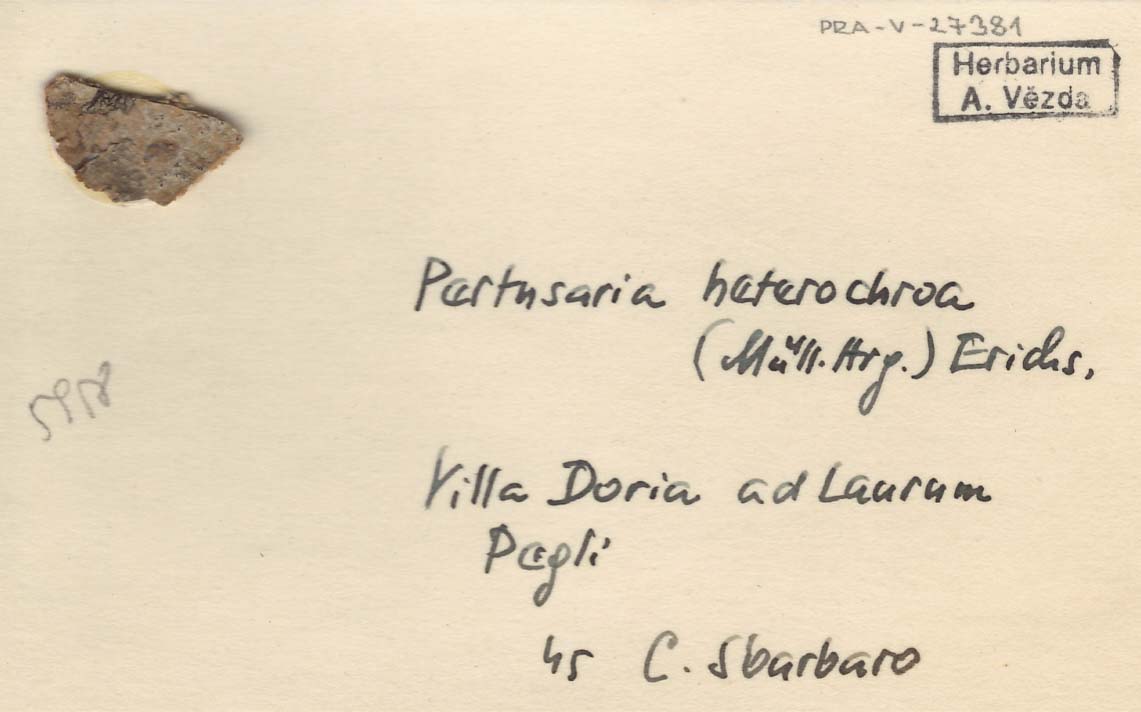 PRA-V-27381
Herbarium
A. Vězda
Pertusaria heterochroa
(Müll. Arg.) Erichs.
Villa Doria ad Laurum
Pegli
C. Sbarbaro